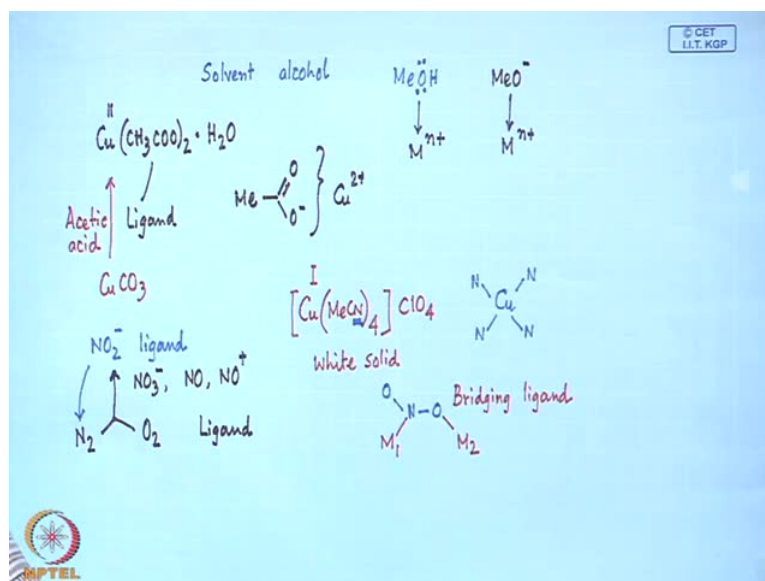 © CET
I.I.T. KGP
Solvent alcohol
MeÖH
MeO⁻
Mⁿ⁺
Mⁿ⁺
II
Cu(CH₃COO)₂ · H₂O
Ligand
Acetic
acid
CuCO₃
Me
O
O⁻
Cu²⁺
I
[Cu(MeCN)₄]ClO₄
White solid
N
N
Cu
N
N
NO₂⁻ ligand
NO₃⁻, NO, NO⁺
N₂
O₂
Ligand
O
N-O
Bridging ligand
M₁
M₂
NPTEL